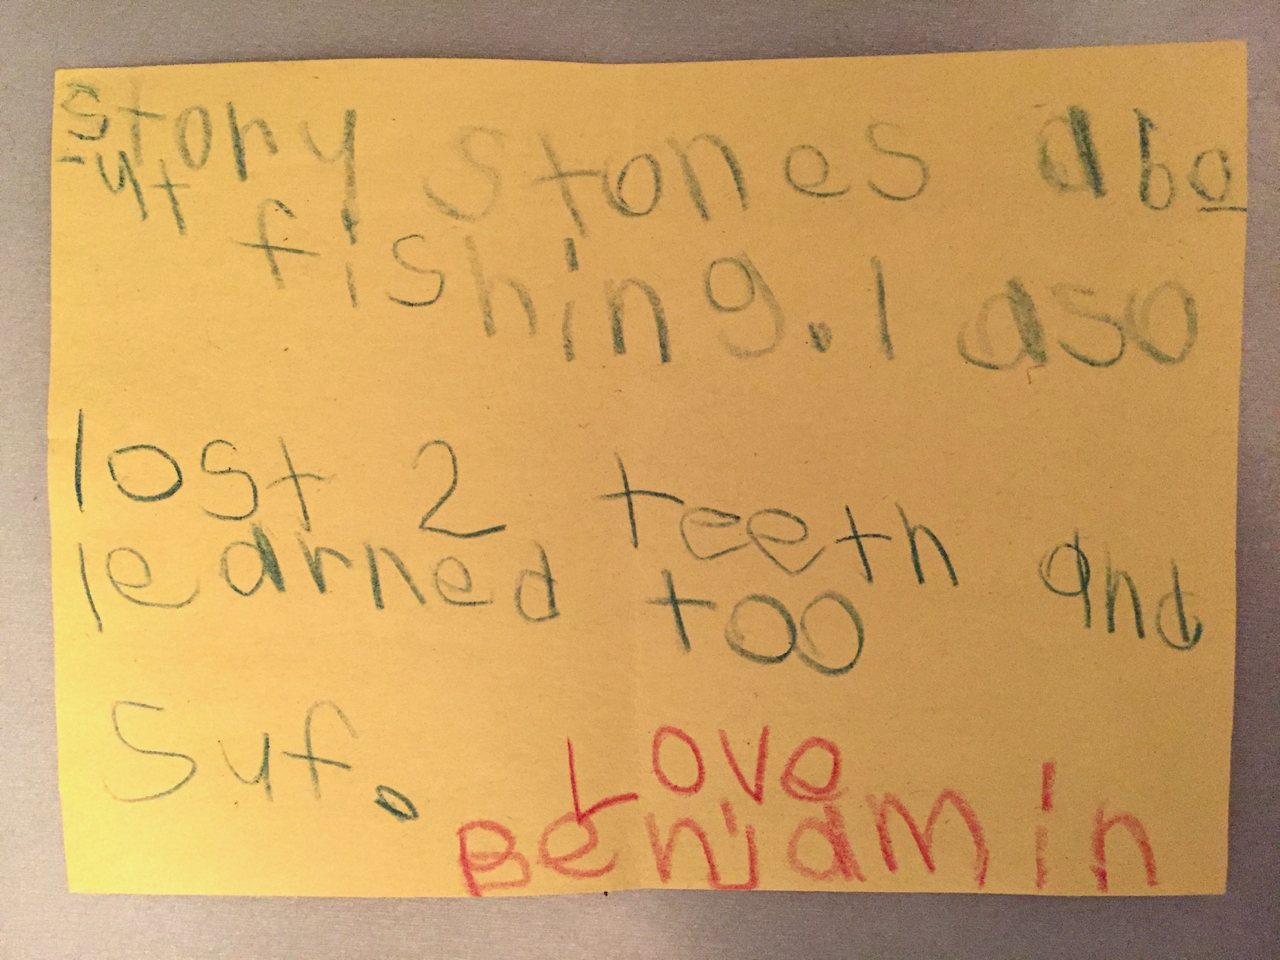 story stones abo
ut fishing. I aso
lost 2 teeth and
learned too
Suf.
Love
Benjamin